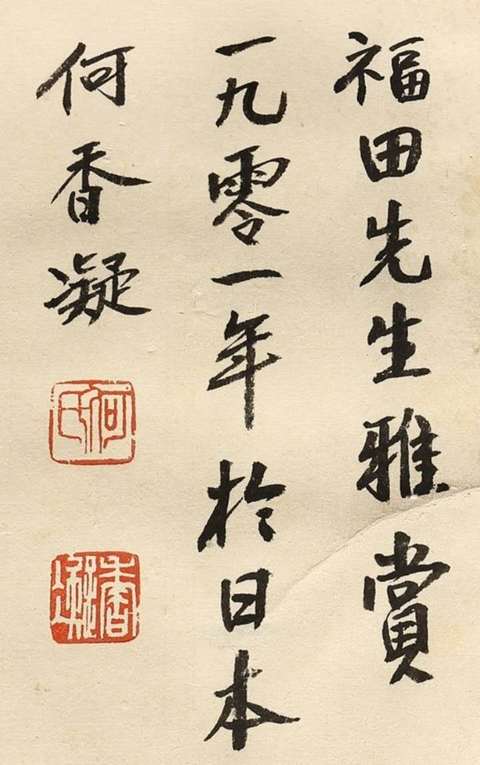 福田先生雅賞
一九零一年於日本
何香凝
何氏
香凝